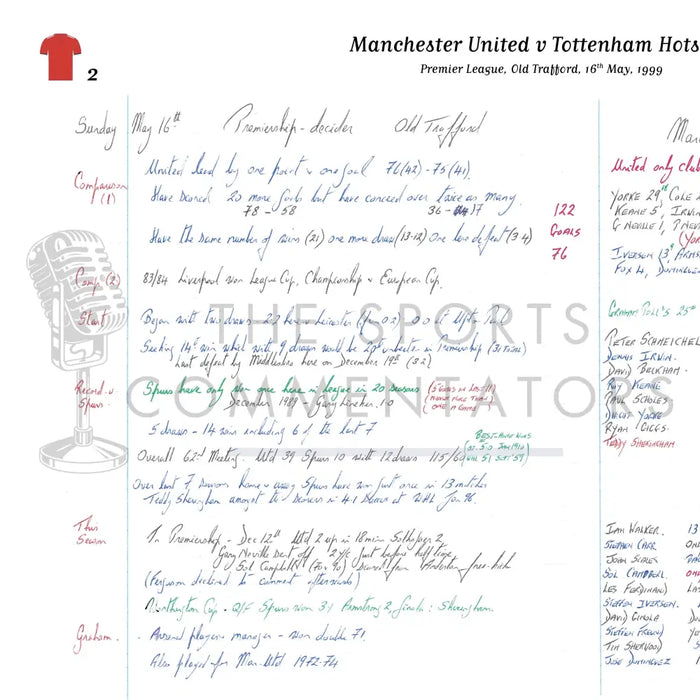 2
Manchester United v Tottenham Hots
Premier League, Old Trafford, 16th May, 1999
Sunday May 16th Premiership - decider Old Trafford
Man
United lead by one point & one goal 76(42) - 75(41)
United only club
Comparison (1)
Have scored 20 more goals but have conceded over twice as many
78 - 58 36 - 17
122 GOALS 76
Have the same number of wins (21) one more draw (13-12) One less defeat (3 4)
YORKE 29 COLE
KEANE 5, IRWIN
G NEVILLE 1, P NEV
(YOR
IVERSON 13, ARMS
FOX 4, DOMINGUEZ
Comp (2)
83/84 Liverpool won League Cup, Championship & European Cup.
THE SPORTS COMMENTATORS
Start
Began with two draws 2 2 here v Leicester 0 0 at Upton Park
Seeking 14th win which with 9 draws would be 20th unbeaten in Premiership (31 )
Last defeat by Middlesbro here on December 19th (3 2)
GRAHAM POLL'S 25th
Record v Spurs
Spurs have only won once here in league in 20 seasons
December 1989 - Gary Lineker. 1 0
(5 GOALS IN LAST 11)
(NONE MORE THAN)
(ONE IN GAME)
5 draws - 14 wins including 6 of the last 7
BEST HOME WINS
Overall 62nd Meeting. Utd 39 Spurs 10 with 12 draws 115/60
Over last 7 seasons home & away Spurs have won just once in 13 matches
Teddy Sheringham amongst the scorers in 4.1 success at WHL Jan 96.
PETER SCHMEICHEL
DENNIS IRWIN.
DAVID BECKHAM.
ROY KEANE
PAUL SCHOLES
DWIGHT YORKE
RYAN GIGGS.
TEDDY SHERINGHAM
This Season
In Premiership - Dec 12th Utd 2 up in 18 min Solskjaer 2
Gary Neville sent off 2 y/c just before half time
Sol Campbell 2 (70n 90) scored from Anderton free-kick
(Ferguson declined to comment afterwards)
Worthington Cup - Q/F Spurs won 3 1 Armstrong 2, Ginola : Sheringham.
IAN WALKER. 13
STEPHEN CARR. ON
JOHN SCALES DA
SOL CAMPBELL. ON
LES FERDINAND LAS
STEFFEN IVERSEN.
DAVID GINOLA YO
STEFFEN FREUND
TIM SHERWOOD
JOSE DOMINGUEZ
Graham.
Arsenal player & manager - won double 71.
Also played for Man. Utd 1972-74